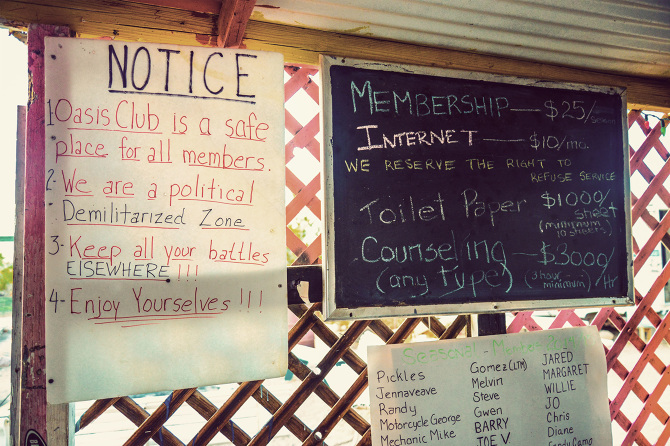 NOTICE
1 Oasis Club is a safe
place for all members.
2- We are a political
Demilitarized Zone
3- Keep all your battles
ELSEWHERE!!!
4- Enjoy Yourselves!!!
MEMBERSHIP — $25/
INTERNET — $10/mo.
WE RESERVE THE RIGHT TO
REFUSE SERVICE
Toilet Paper $1000/
sheet
(minimum
10 sheets)
Counseling — $3000/
(any type) (3 hour minimum) /Hr
Pickles
Jennaveave
Randy
Motorcycle George
Mechanic Mike
Gomez (LTM)
Melvin
Steve
Gwen
BARRY
JOEY
JARED
MARGARET
WILLIE
JO
Chris
Diane
Camp